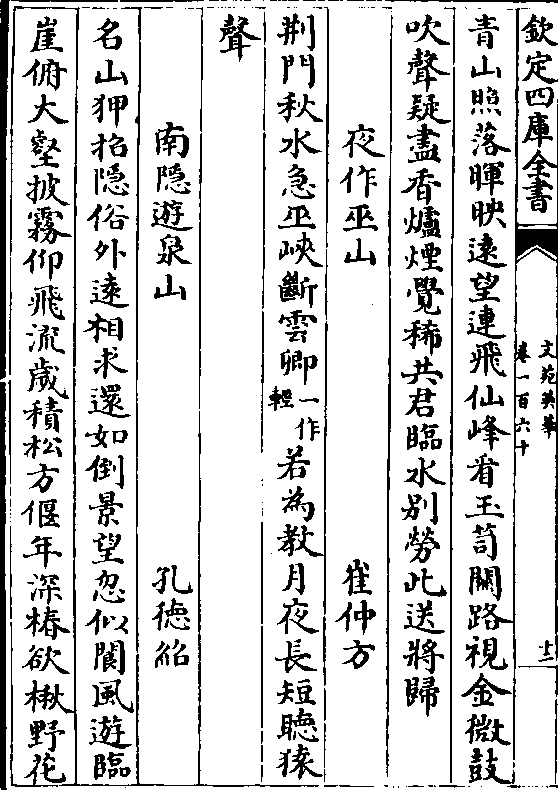 欽定四庫全書
文苑英華
卷一百六十
十二
青山照落暉映遠望連飛仙峰看玉笥關路視金微鼓
吹聲疑盡香爐煙覺稀共君臨水别勞此送將歸
夜作巫山
崔仲方
荆門秋水急巫峽斷雲卿一作輕若為教月夜長短聽猿
聲
南隱遊泉山
孔徳紹
名山狎招隱俗外遠相求還如倒景望忽似閬風遊臨
崖俯大壑披霧仰飛流歲積松方偃年深椿欲楸野花